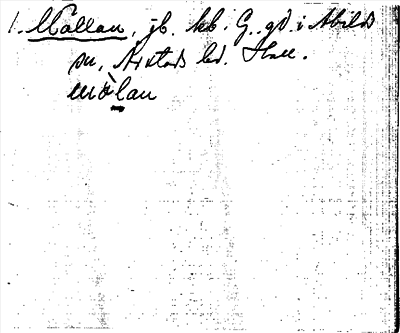 1. Mallan, jb. kb. G., gd. i Abilds
sn, Årstads hd. Hall.
mòlan